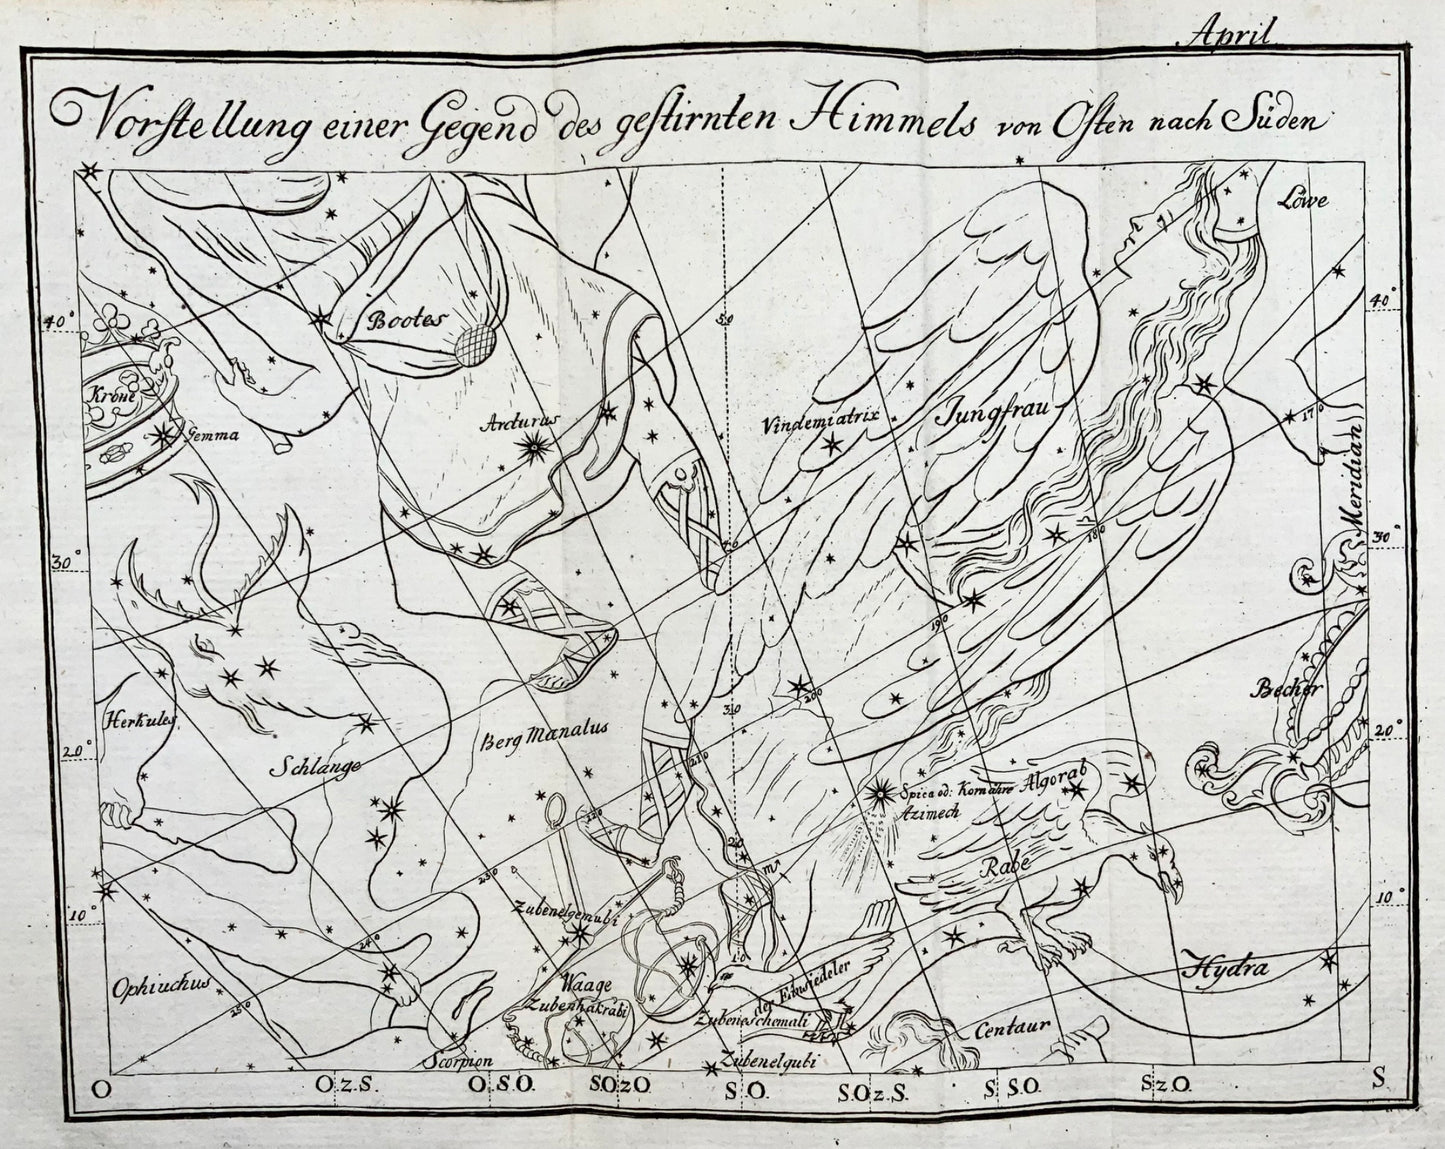 April
Vorstellung einer Gegend des gestirnten Himmels von Osten nach Süden
Löwe
40°
40°
50
Bootes
Krone
Gemma
Arcturus
Vindemiatrix
Jungfrau
170
Meridian
30°
30°
40
180
190
200
Herkules
Schlange
Berg Mænalus
30
Becher
20°
20°
210
Spica od: Kornähre
Azimech
Algorab
220
20
230
Rabe
10°
10°
Zubenelgemubi
240
10
Ophiuchus
250
Waage
Zubenhakrabi
der Einsiedeler
Zubeneschemali
Hydra
Centaur
Scorpion
Zubenelgubi
O O.z.S. O.S.O. S.O.z.O. S.O. S.O.z.S. S.S.O. S.z.O. S